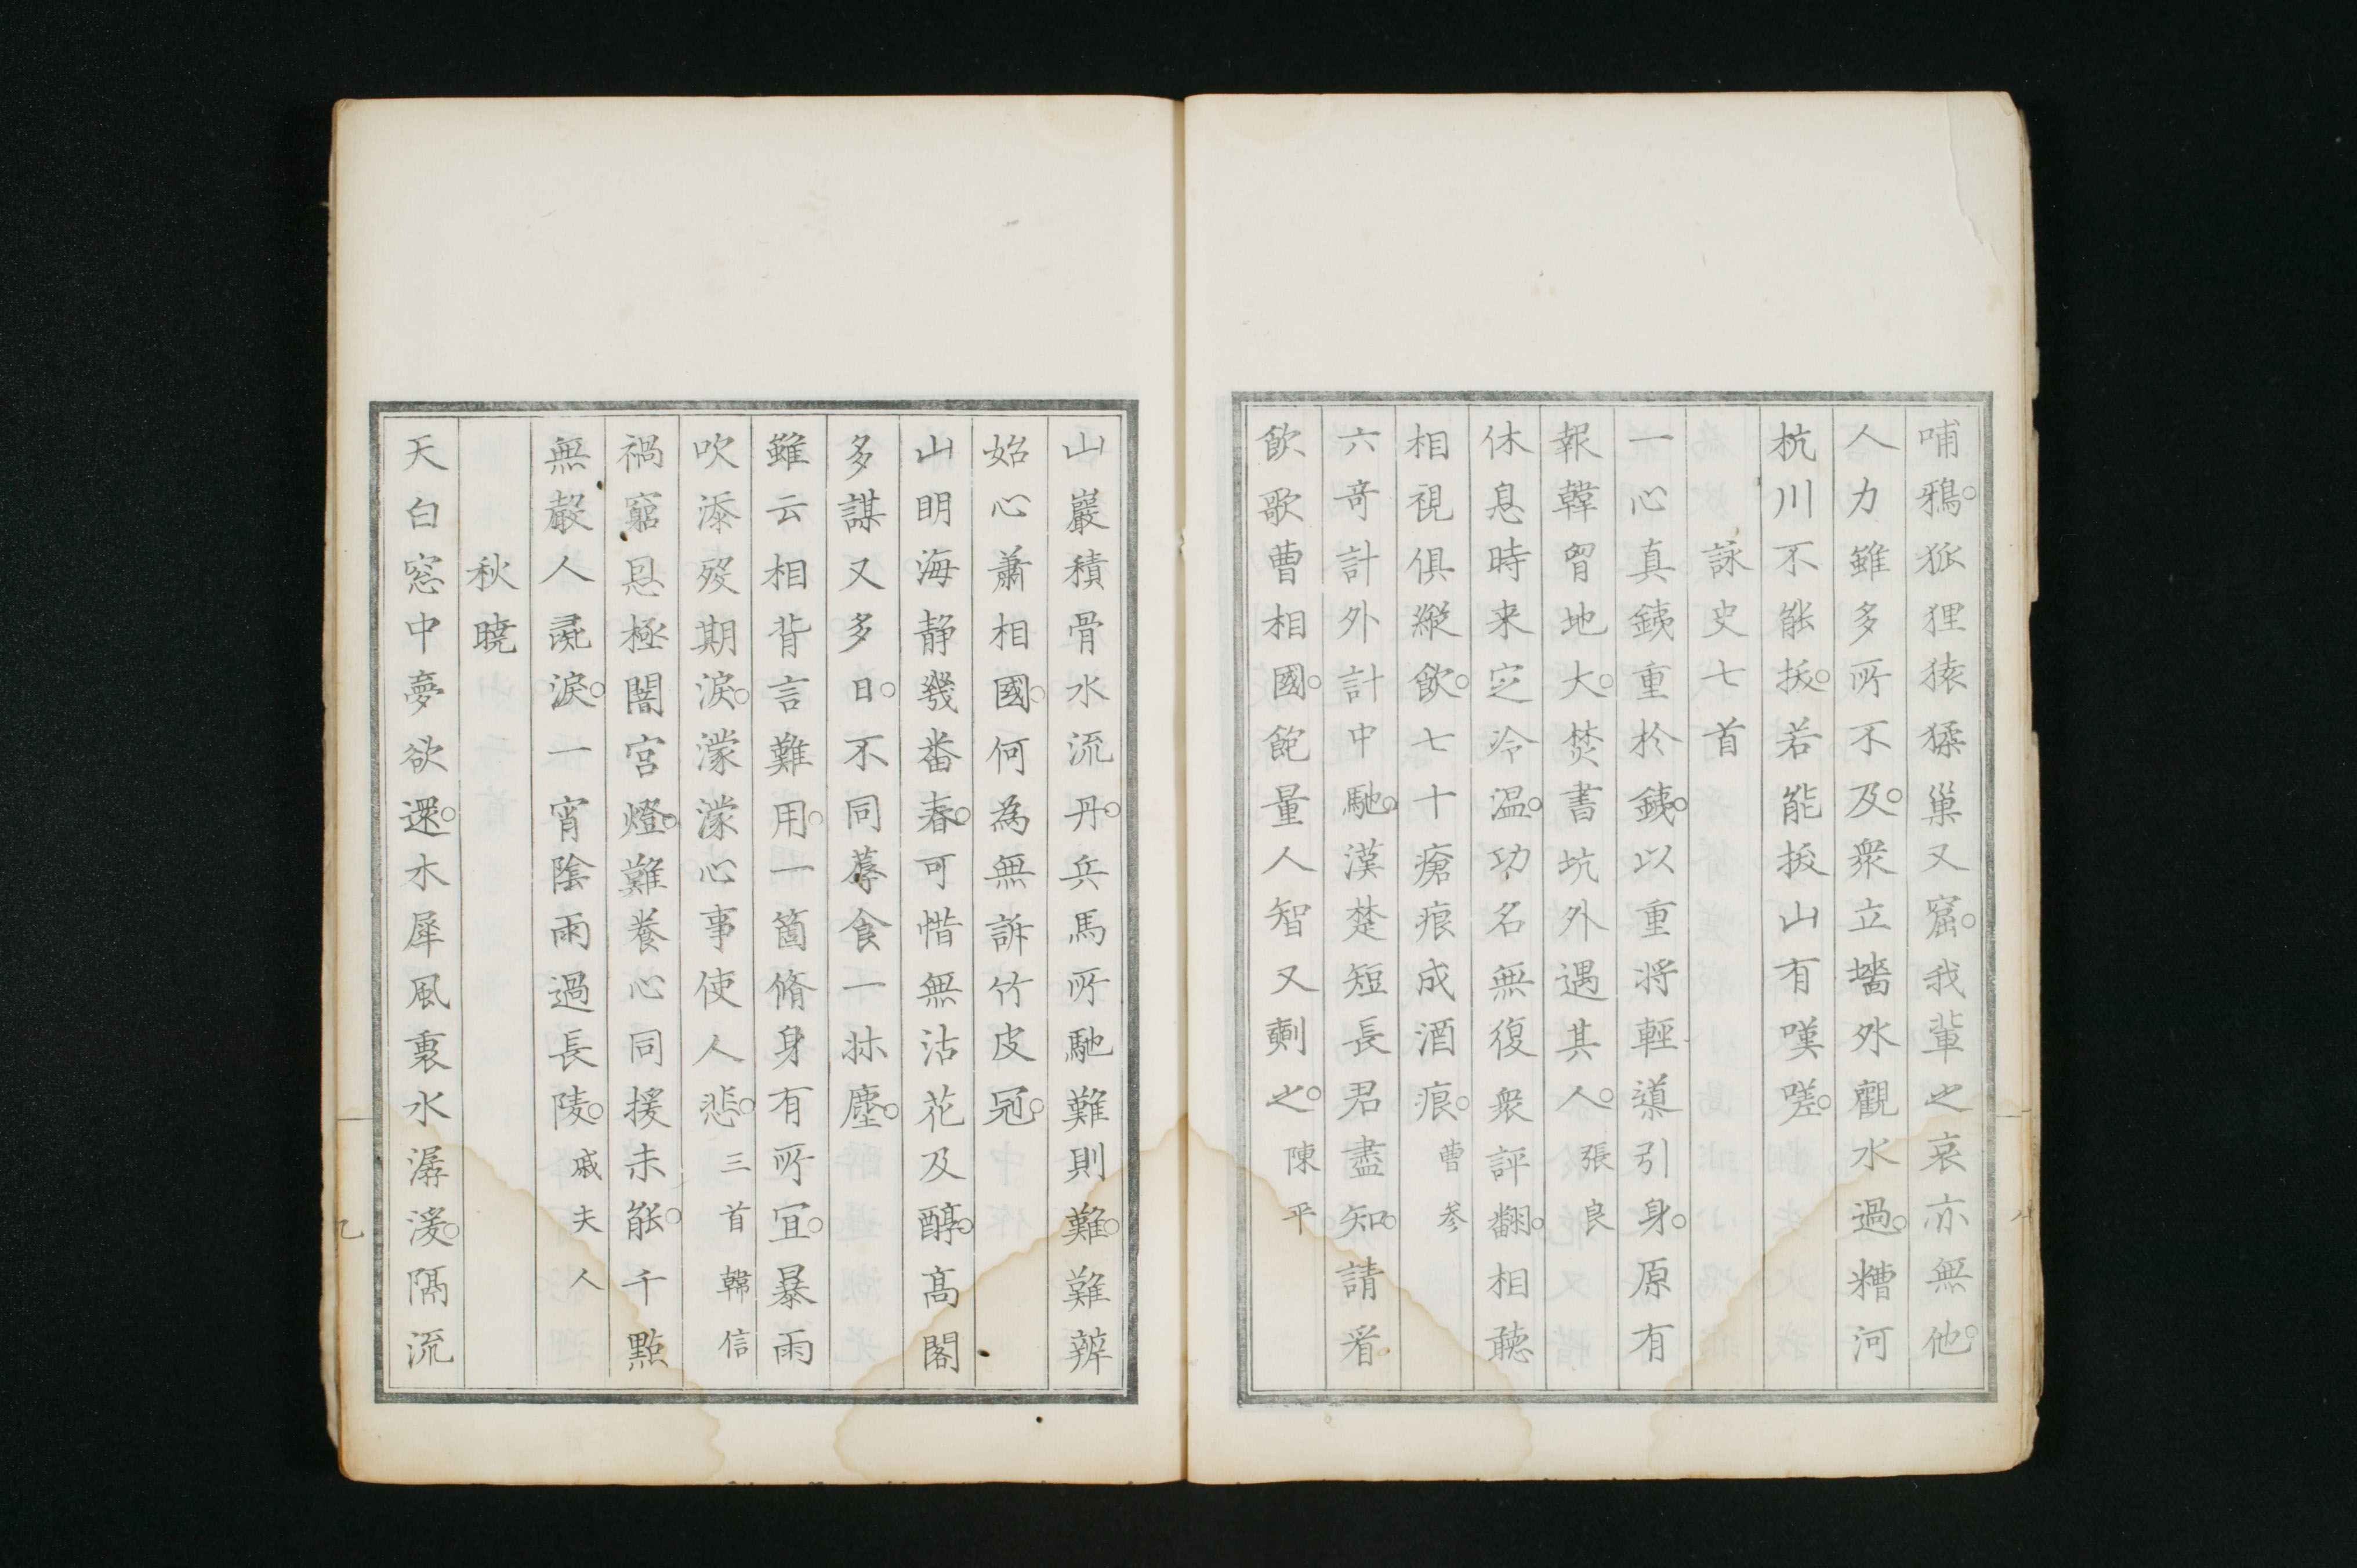 哺鴉。狐狸猿猱巢又窟。我輩之哀亦無他。
人力雖多所不及。衆立墻外觀水過。糟河
杭川不能拔。若能拔山有嘆嗟。
詠史七首
一心真銕重於銕。以重將輕導引身。原有
報韓胷地大。焚書坑外遇其人。張良
休息時来定冷温。功名無復衆評翻。相聴
相視俱縱飲。七十瘡痕成酒痕。曹参
六竒計外計中馳。漢楚短長君盡知。請看
飲歌曹相國。飽量人智又剩之。陳平
山巖積骨水流丹。兵馬所馳難則難。難辨
始心蕭相國。何為無訴竹皮冠。
山明海静幾番春。可惜無沽花及醇。髙閣
多謀又多日。不同蓐食一牀塵。
雖云相背言難用。一箇脩身有所宜。暴雨
吹添歿期淚。濛濛心事使人悲。三首韓信
禍窮恩極闇宫燈。難養心同援未能。千點
無聲人彘淚。一宵陰雨過長陵。戚夫人
秋曉
天白窓中夢欲還。木犀風裏水潺湲。隔流
八
乙